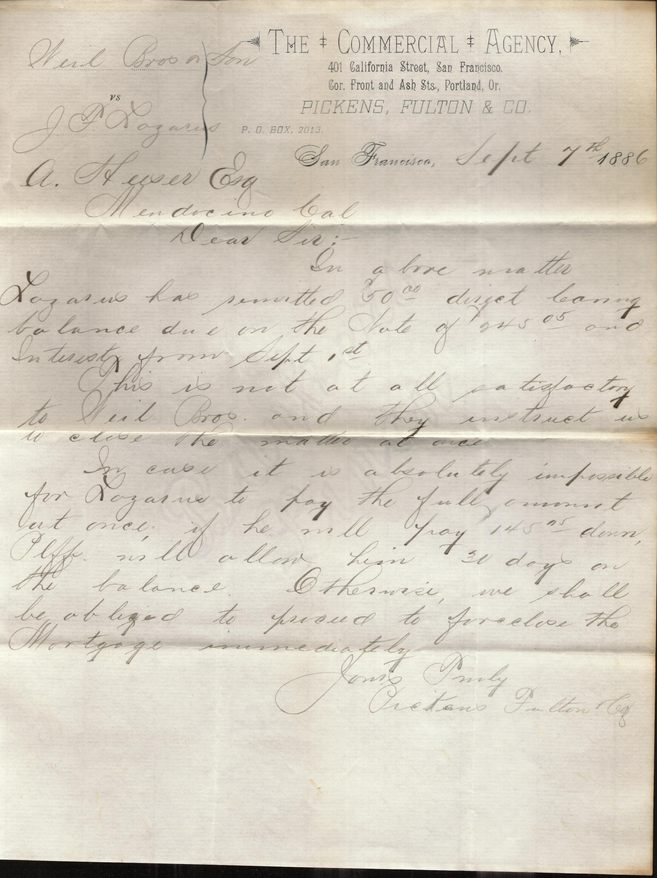 THE COMMERCIAL AGENCY,
401 California Street, San Francisco.
Cor. Front and Ash Sts., Portland, Or.
PICKENS, FULTON & CO.
P. O. BOX, 2013.
Weil Bros & Son
vs
J P Lazarus
San Francisco, Sept 7th 1886
A. Heeser Esq
Mendocino Cal
Dear Sir:-
In above matter
Lazarus has remitted 50 00 direct leaving
balance due on the Note of 245 05 and
Interest from Sept 1st
This is not at all satisfactory
to Weil Bros. and they instruct us
to close the matter at once
In case it is absolutely impossible
for Lazarus to pay the full amount
at once, if he will pay 145 05 down,
Plff. will allow him 30 days on
the balance. Otherwise, we shall
be obliged to proceed to foreclose the
Mortgage immediately
Yours Truly
Pickens Fulton & Co